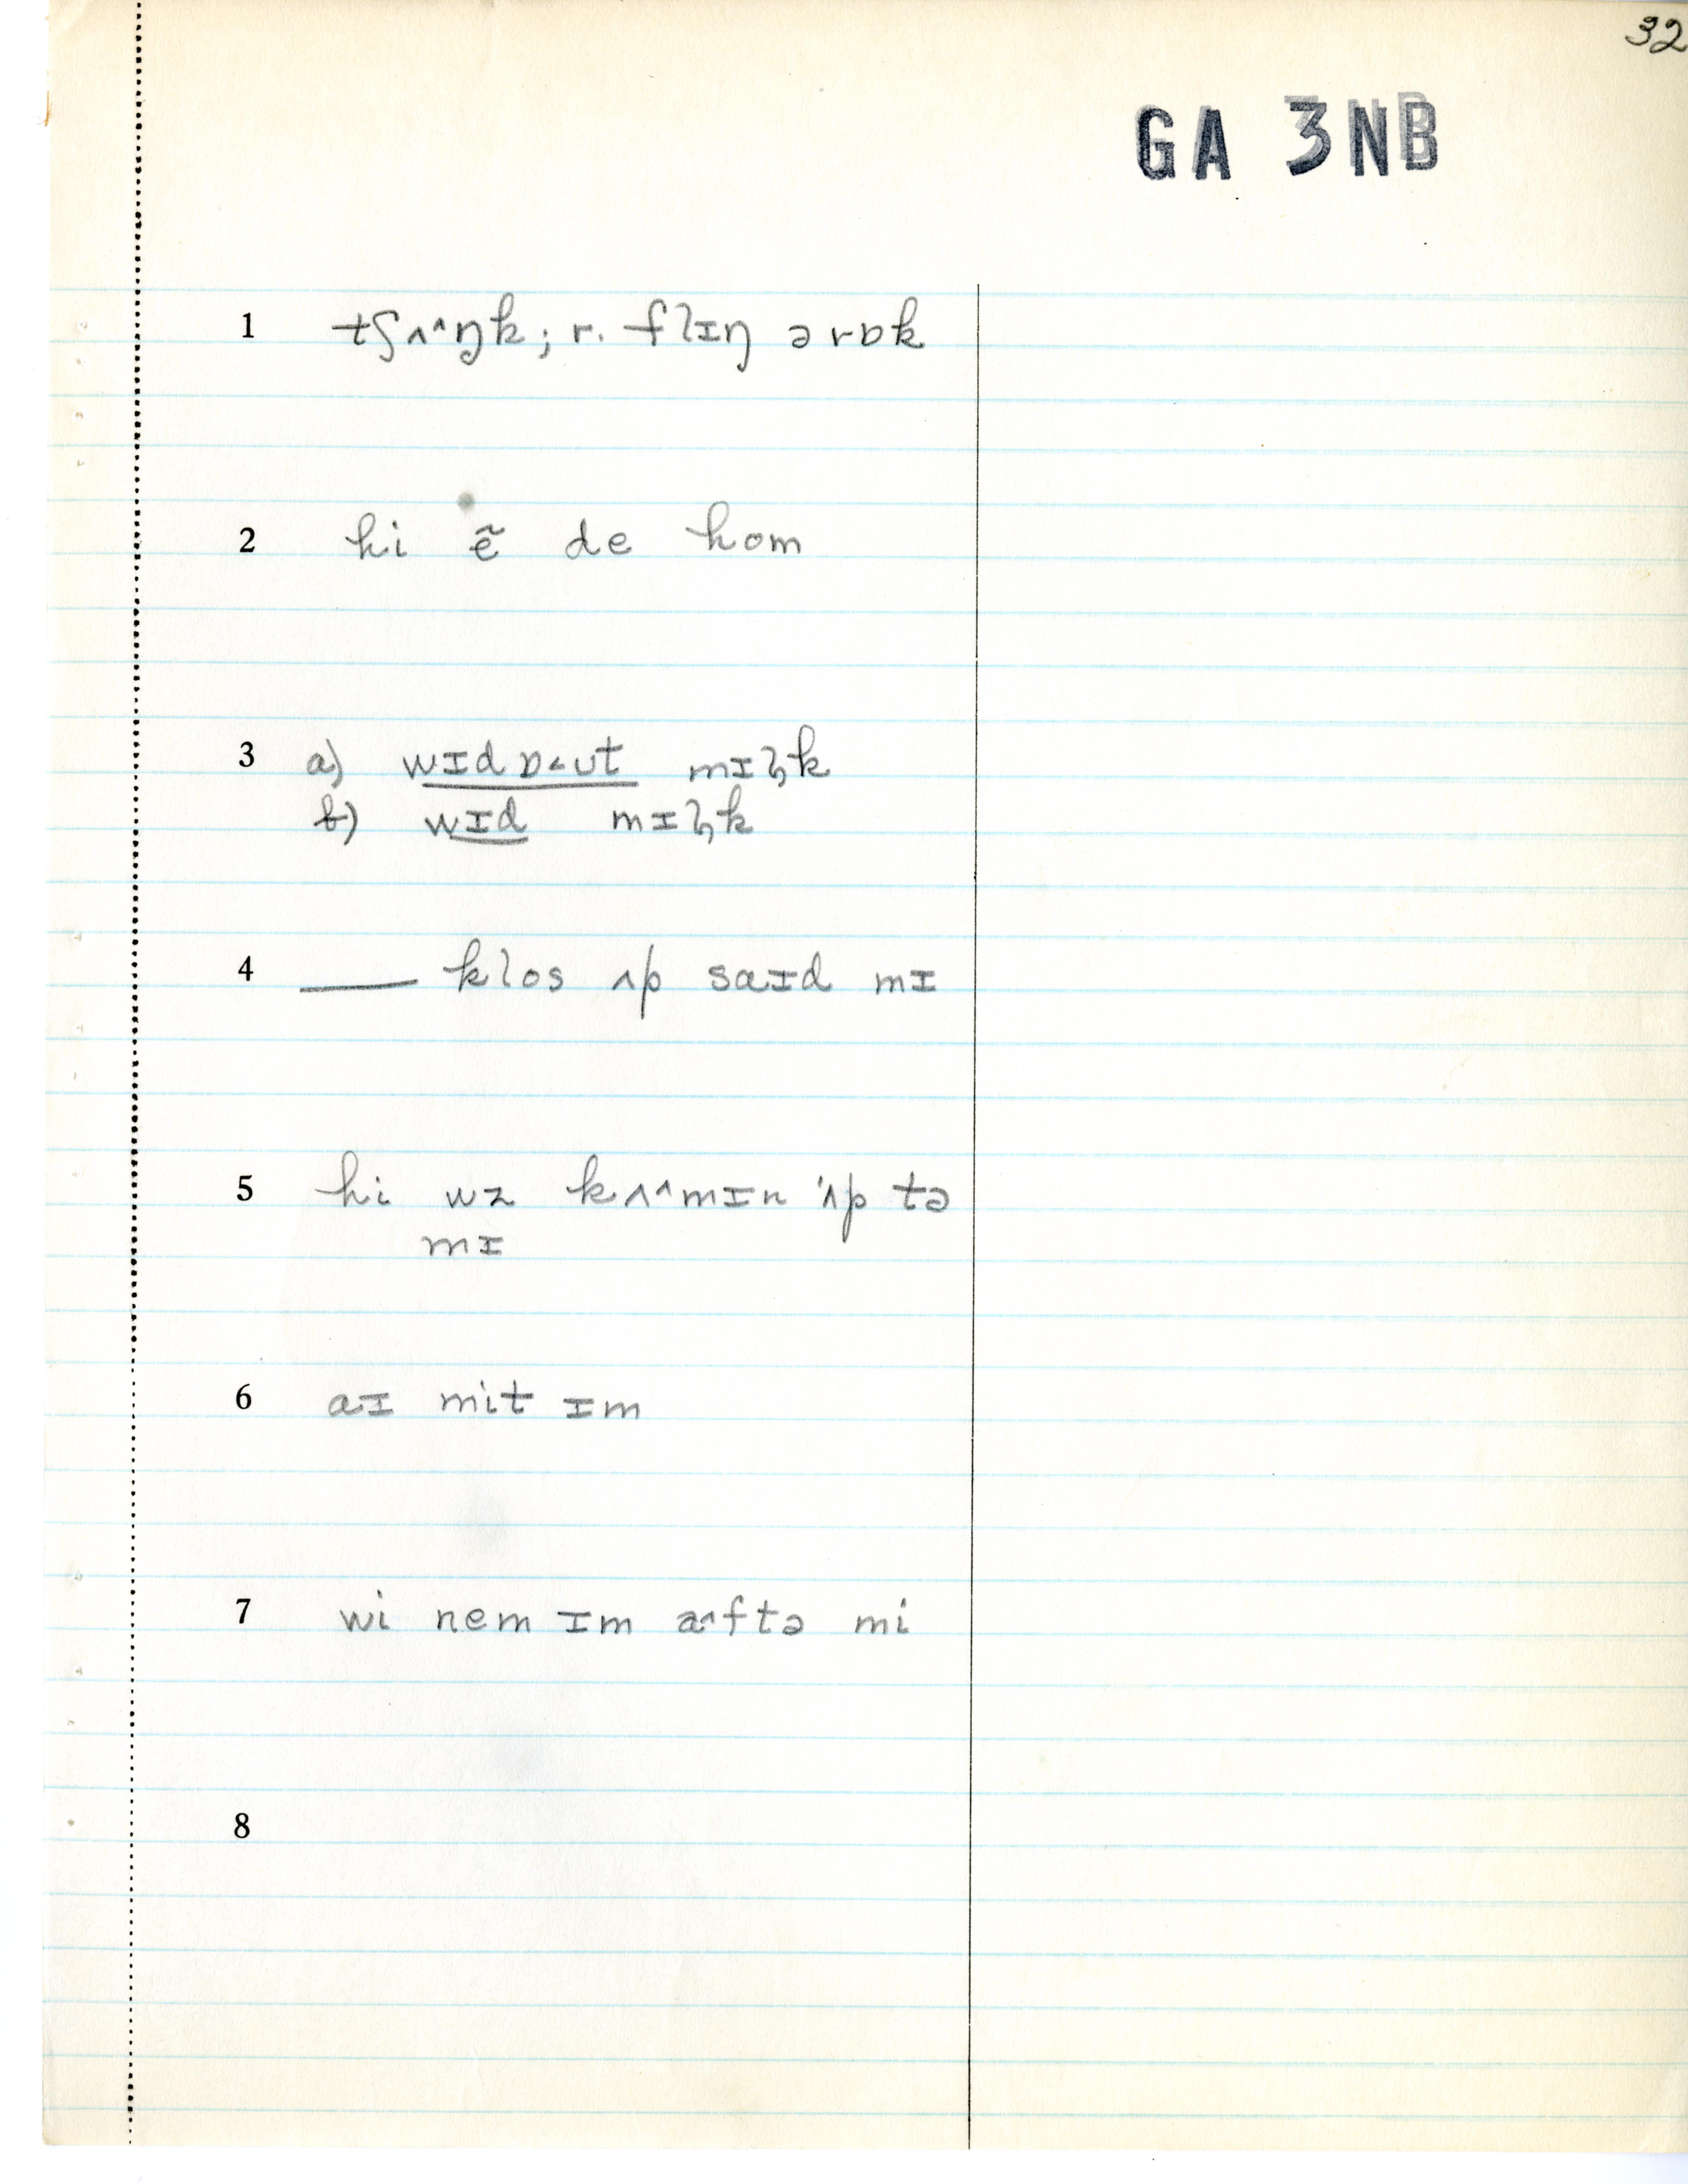 32
GA 3NB
1 tʃʌ^ŋk; r. flɪŋ ə rɒk
2 hi ẽ de hom
3 a) wɪdɒ˂ʊt mɪɫk
b) wɪd mɪɫk
4 ___ klos ʌp saɪd mɪ
5 hi wz kʌ^mɪn 'ʌp tə
mɪ
6 aɪ mit ɪm
7 wi nem ɪm æ^ftə mi
8